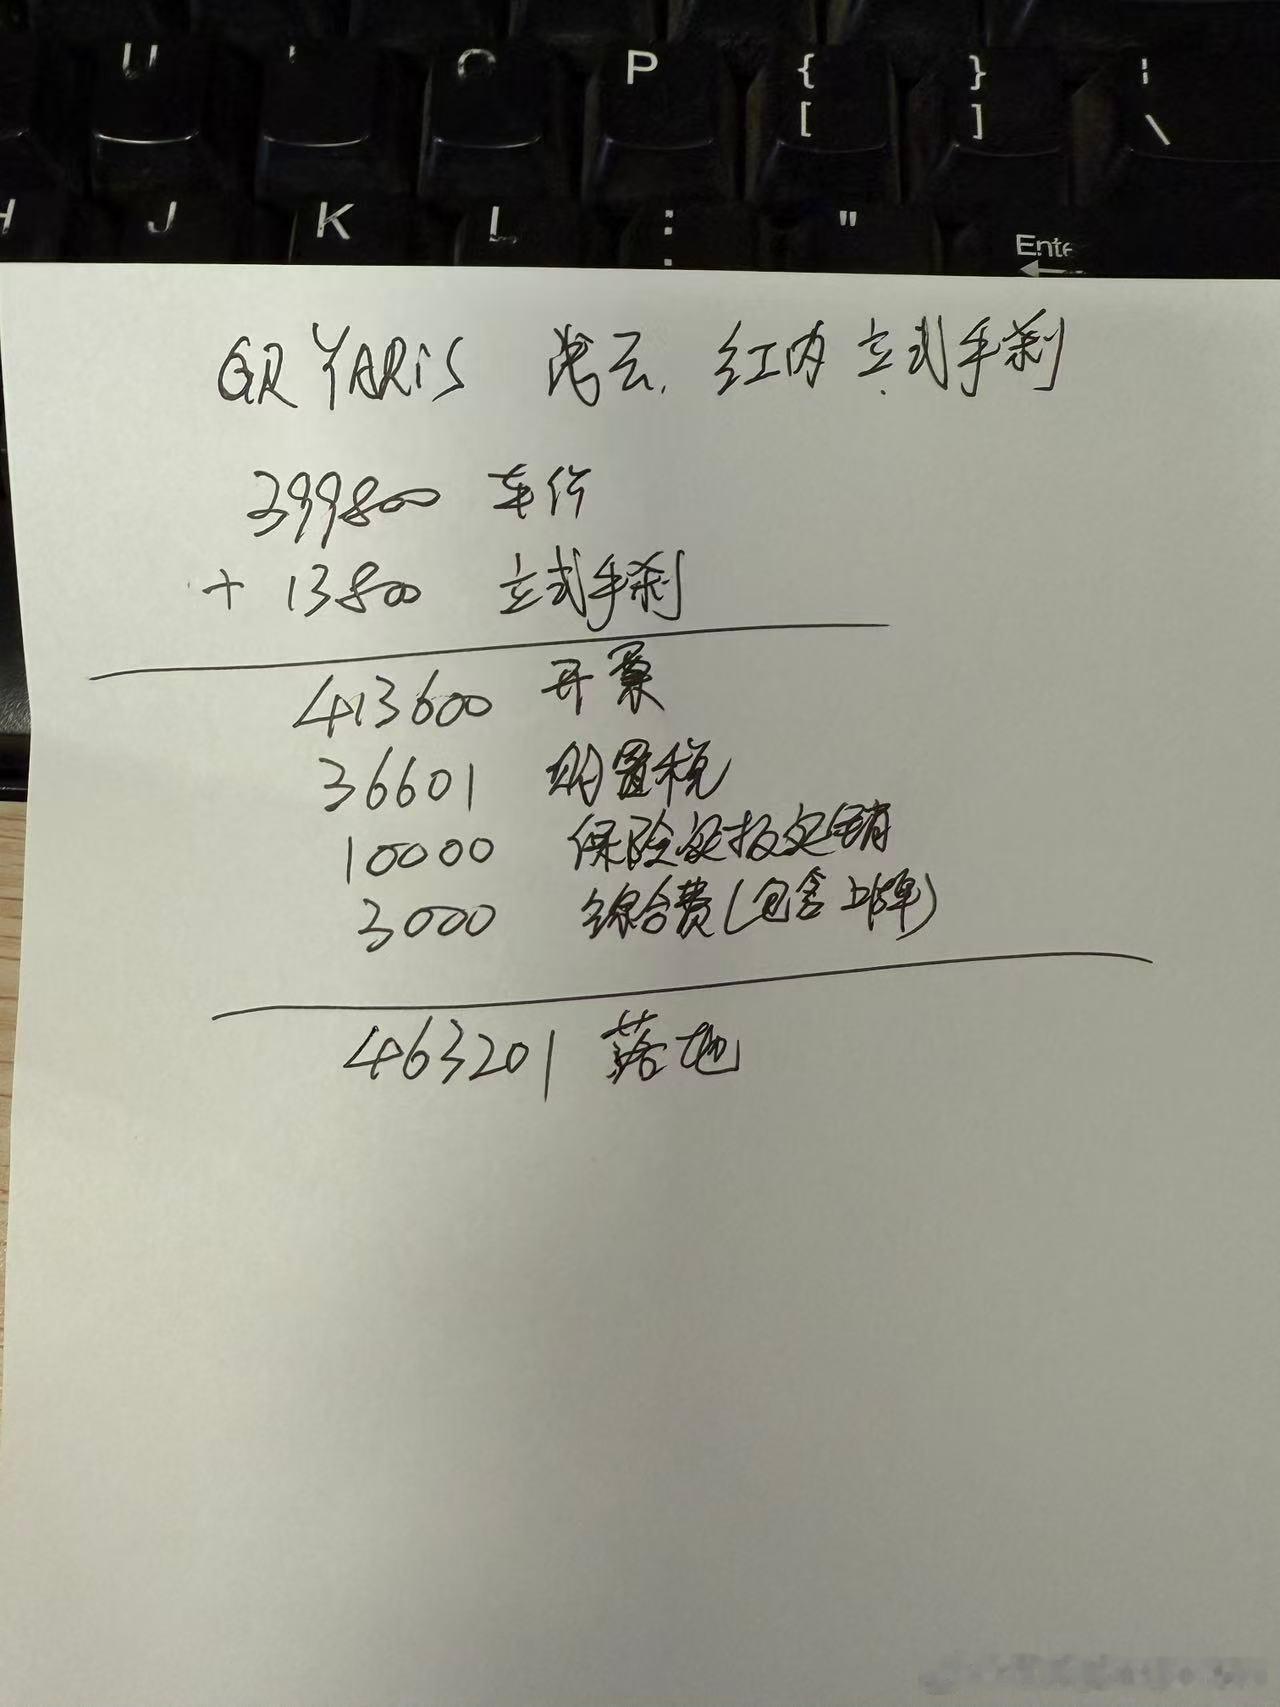 U P { } |
[ ] \
H J K L : "
Enter
GR YARiS 湾云. 红内 立式手刹
399800 车价
+ 13800 立式手刹
413600 开票
36601 购置税
10000 保险实报实销
3000 综合费(包含上牌)
463201 落地